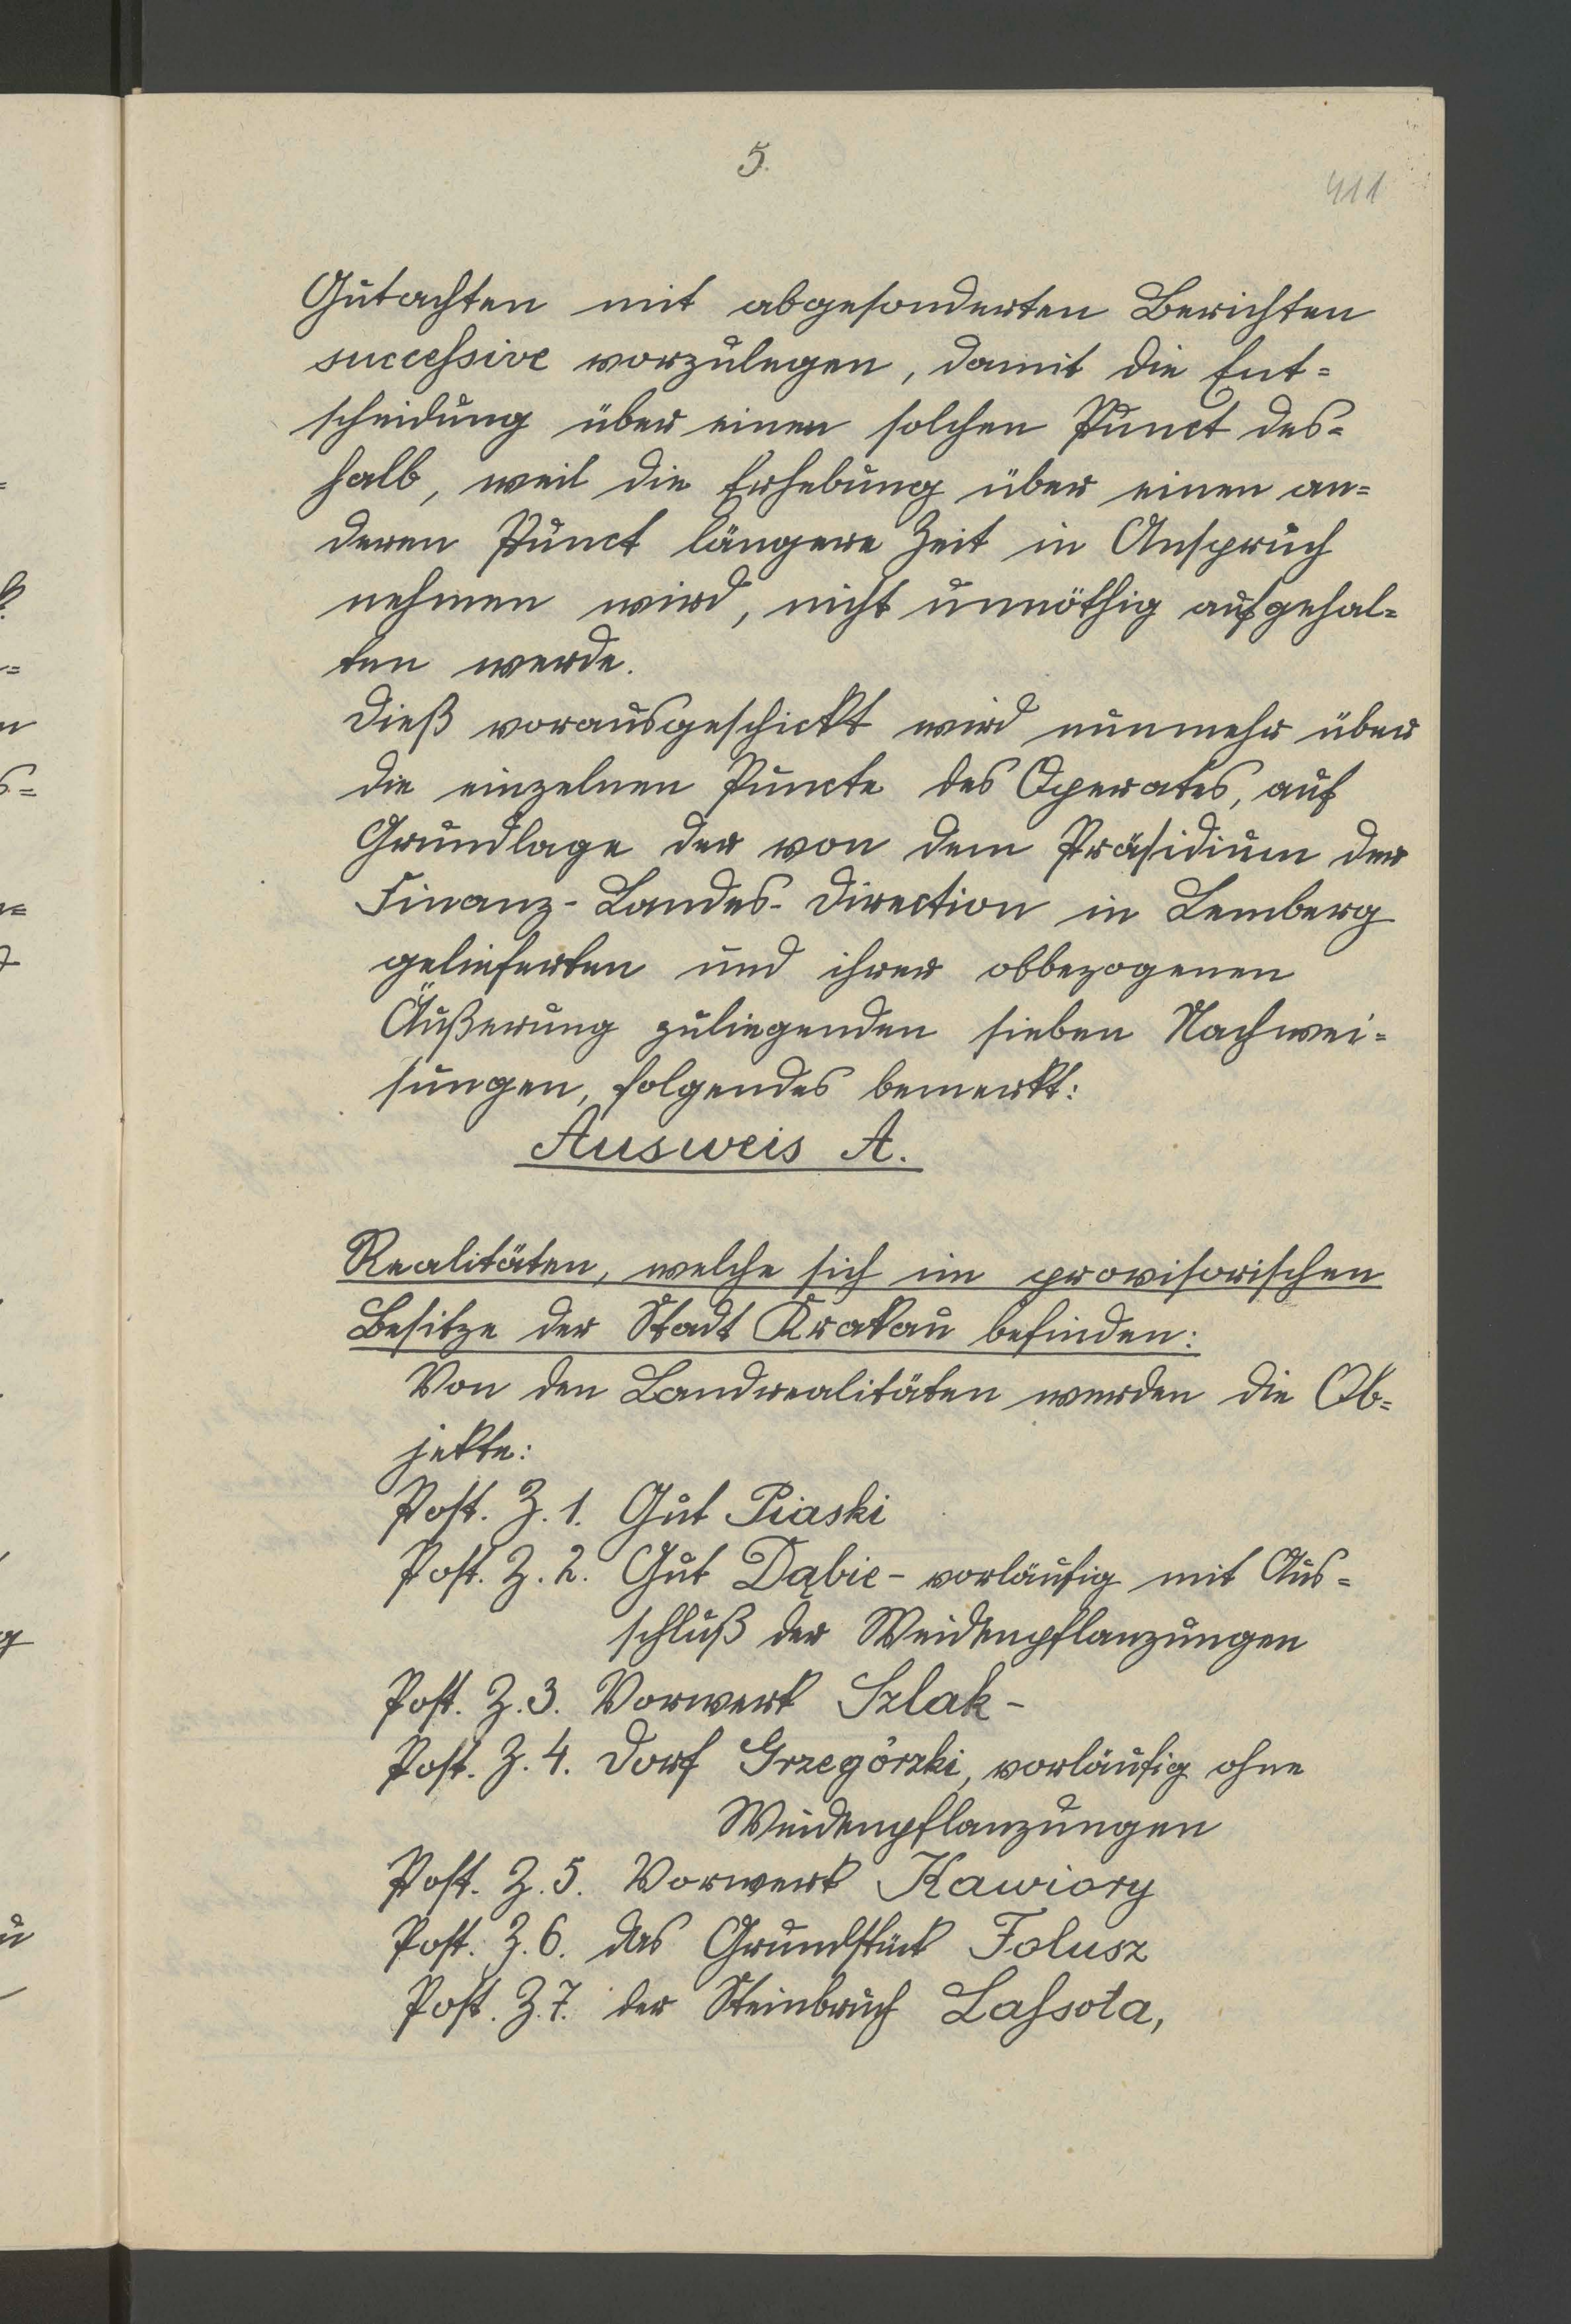 5.
411
Gutachten mit abgesonderten Berichten
successive vorzulegen, damit die Ent=
scheidung über einen solchen Punct des=
halb, weil die Erhebung über einen an=
deren Punct längere Zeit in Anspruch
nehmen wird, nicht unnöthig aufgehal=
ten werde.
Dieß vorausgeschickt wird nunmehr über
die einzelnen Puncte des Operates, auf
Grundlage der von dem Präsidium der
Finanz-Landes-Direction in Lemberg
gelieferten und ihrer obbezogenen
Äußerung zuliegenden sieben Nachwei=
sungen, folgendes bemerkt:
Ausweis A.
Realitäten, welche sich im provisorischen
Besitze der Stadt Krakau befinden:
Von den Landrealitäten werden die Ob=
jekte:
Post. Z. 1. Gut Piaski
Post. Z. 2. Gut Dąbie - vorläufig mit Aus=
schluß der Weidenpflanzungen
Post. Z. 3. Vorwerk Szlak -
Post. Z. 4. Dorf Grzegórzki, vorläufig ohne
Weidenpflanzungen
Post. Z. 5. Vorwerk Kawiory
Post. Z. 6. das Grundstück Folusz
Post. Z. 7. der Steinbruch Lassota,